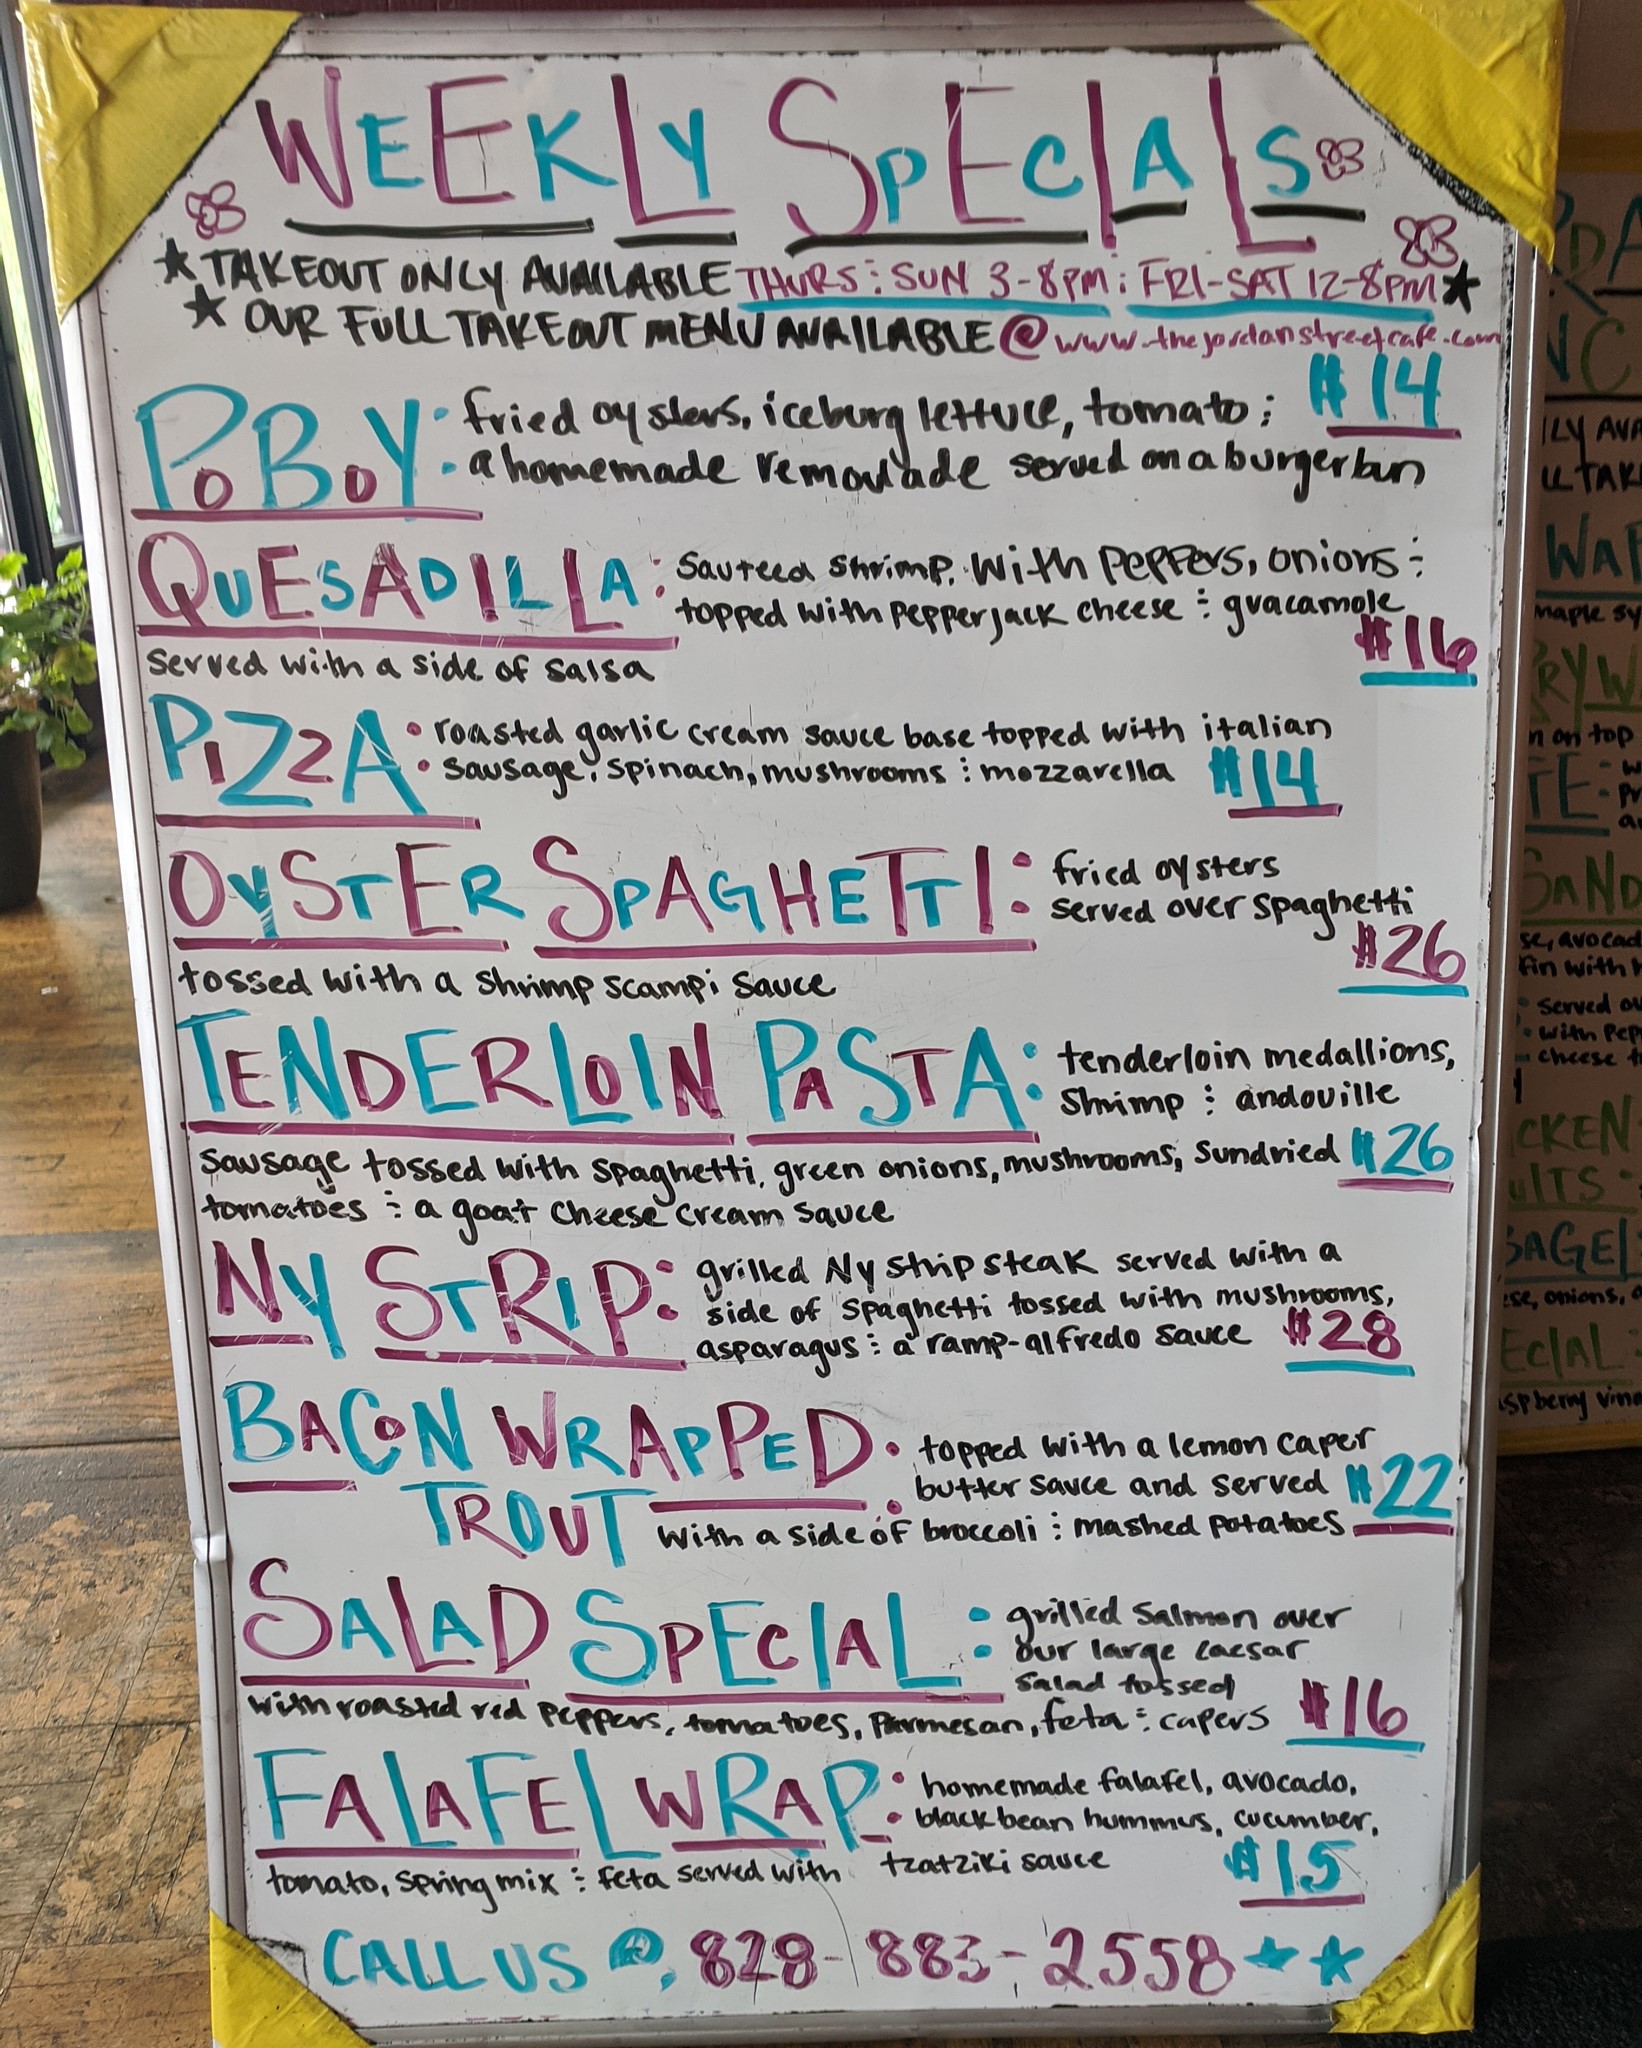 WEEKLY SPECIALS
★ TAKEOUT ONLY AVAILABLE THURS & SUN 3-8PM & FRI-SAT 12-8PM ★
★ OUR FULL TAKEOUT MENU AVAILABLE @ www.thejordanstreetcafe.com
PO BOY: fried oysters, iceburg lettuce, tomato & $14
a homemade remoulade served on a burger bun
QUESADILLA: sauteed shrimp, with peppers, onions &
topped with pepperjack cheese & guacamole
$16
served with a side of salsa
PIZZA: roasted garlic cream sauce base topped with italian
sausage, spinach, mushrooms & mozzarella $14
OYSTER SPAGHETTI: fried oysters
served over spaghetti
$26
tossed with a shrimp scampi sauce
TENDERLOIN PASTA: tenderloin medallions,
shrimp & andouille
sausage tossed with spaghetti, green onions, mushrooms, sundried $26
tomatoes & a goat cheese cream sauce
NY STRIP: grilled NY strip steak served with a
side of spaghetti tossed with mushrooms,
asparagus & a ramp-alfredo sauce $28
BACON WRAPPED TROUT: topped with a lemon caper
butter sauce and served $22
with a side of broccoli & mashed potatoes
SALAD SPECIAL: grilled salmon over
our large caesar
salad tossed
with roasted red peppers, tomatoes, parmesan, feta & capers $16
FALAFEL WRAP: homemade falafel, avocado,
black bean hummus, cucumber,
tomato, spring mix & feta served with tzatziki sauce $15
CALL US @ 828-883-2558 ★ ★
maple sy
on top
avocad
fin with
served ov
with pep
cheese
onions,